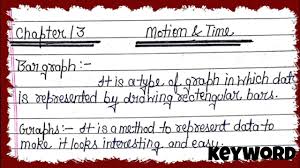 Chapter 13 Motion & Time
Bargraph:-
It is a type of graph in which data
is represented by drawing rectengular bars.
Graphs:- It is a method to represent data to
make it looks interesting and easy.
KEYWORD